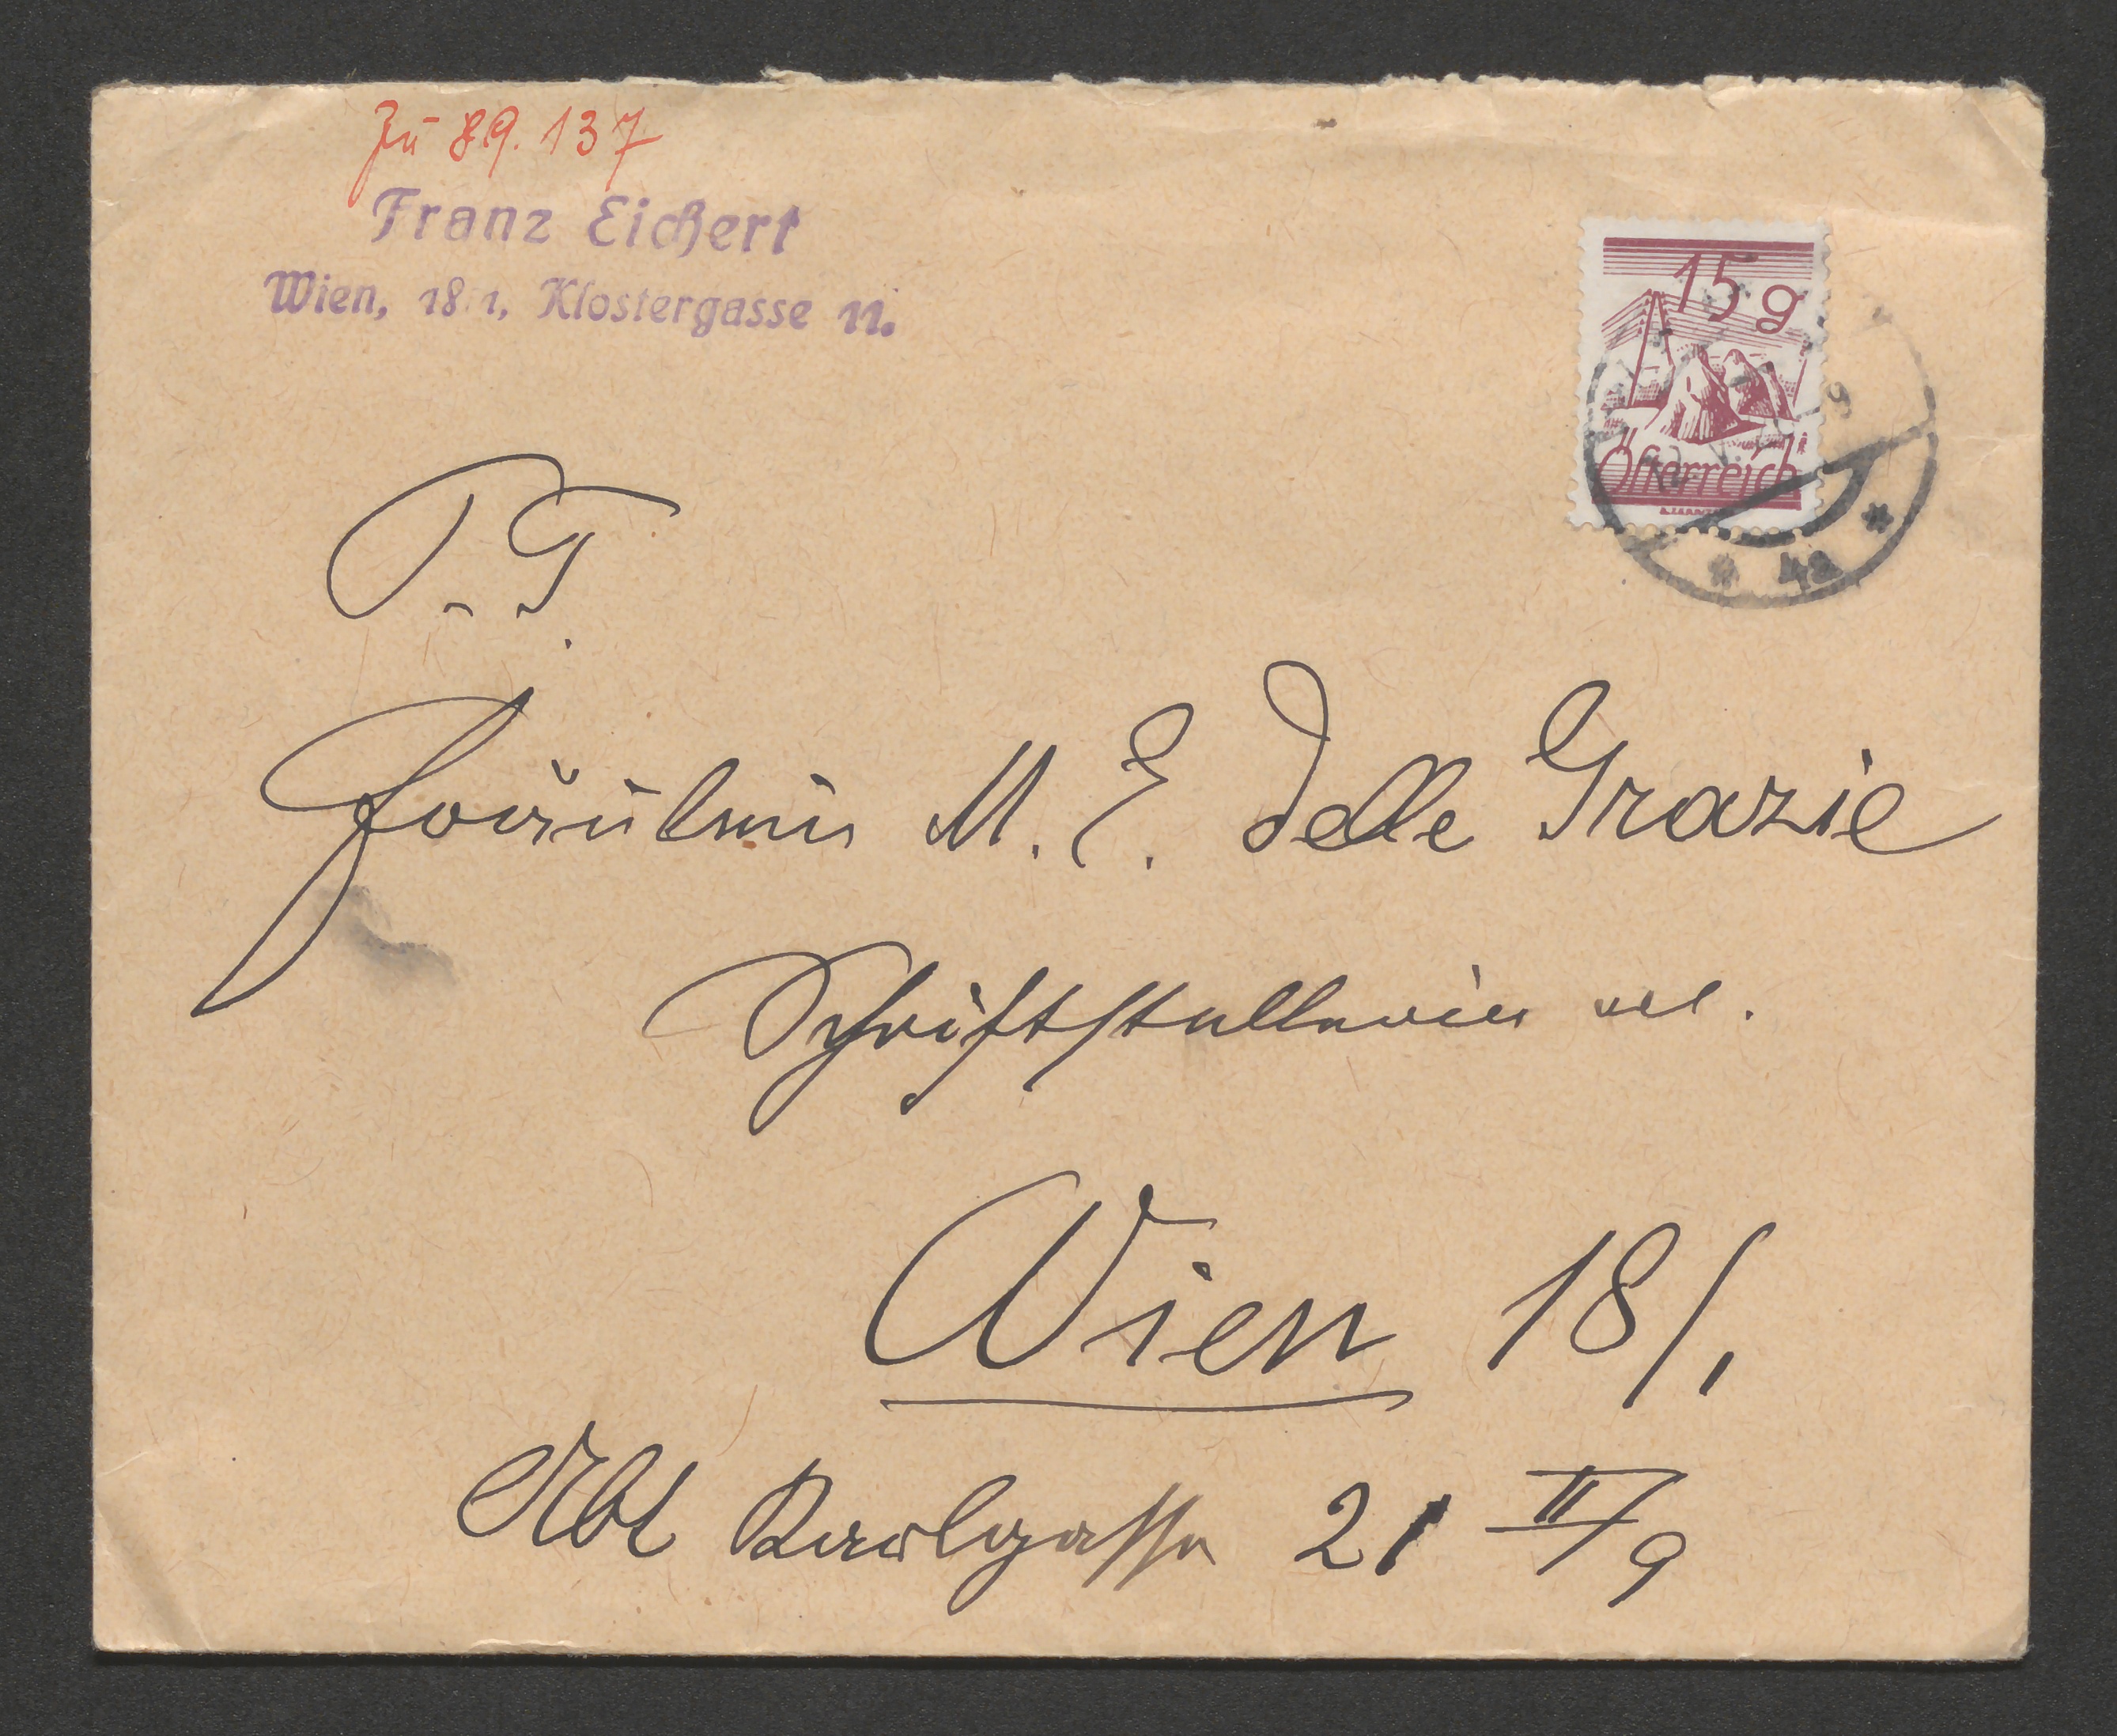 Zu 89.137
Franz Eichert
Wien, 18/1, Klostergasse 11.
15 g
Österreich
P. T.
Fräulein M. E. delle Grazie
Schriftstellerin etc.
Wien 18/1
Abt Karlgasse 21 II/9